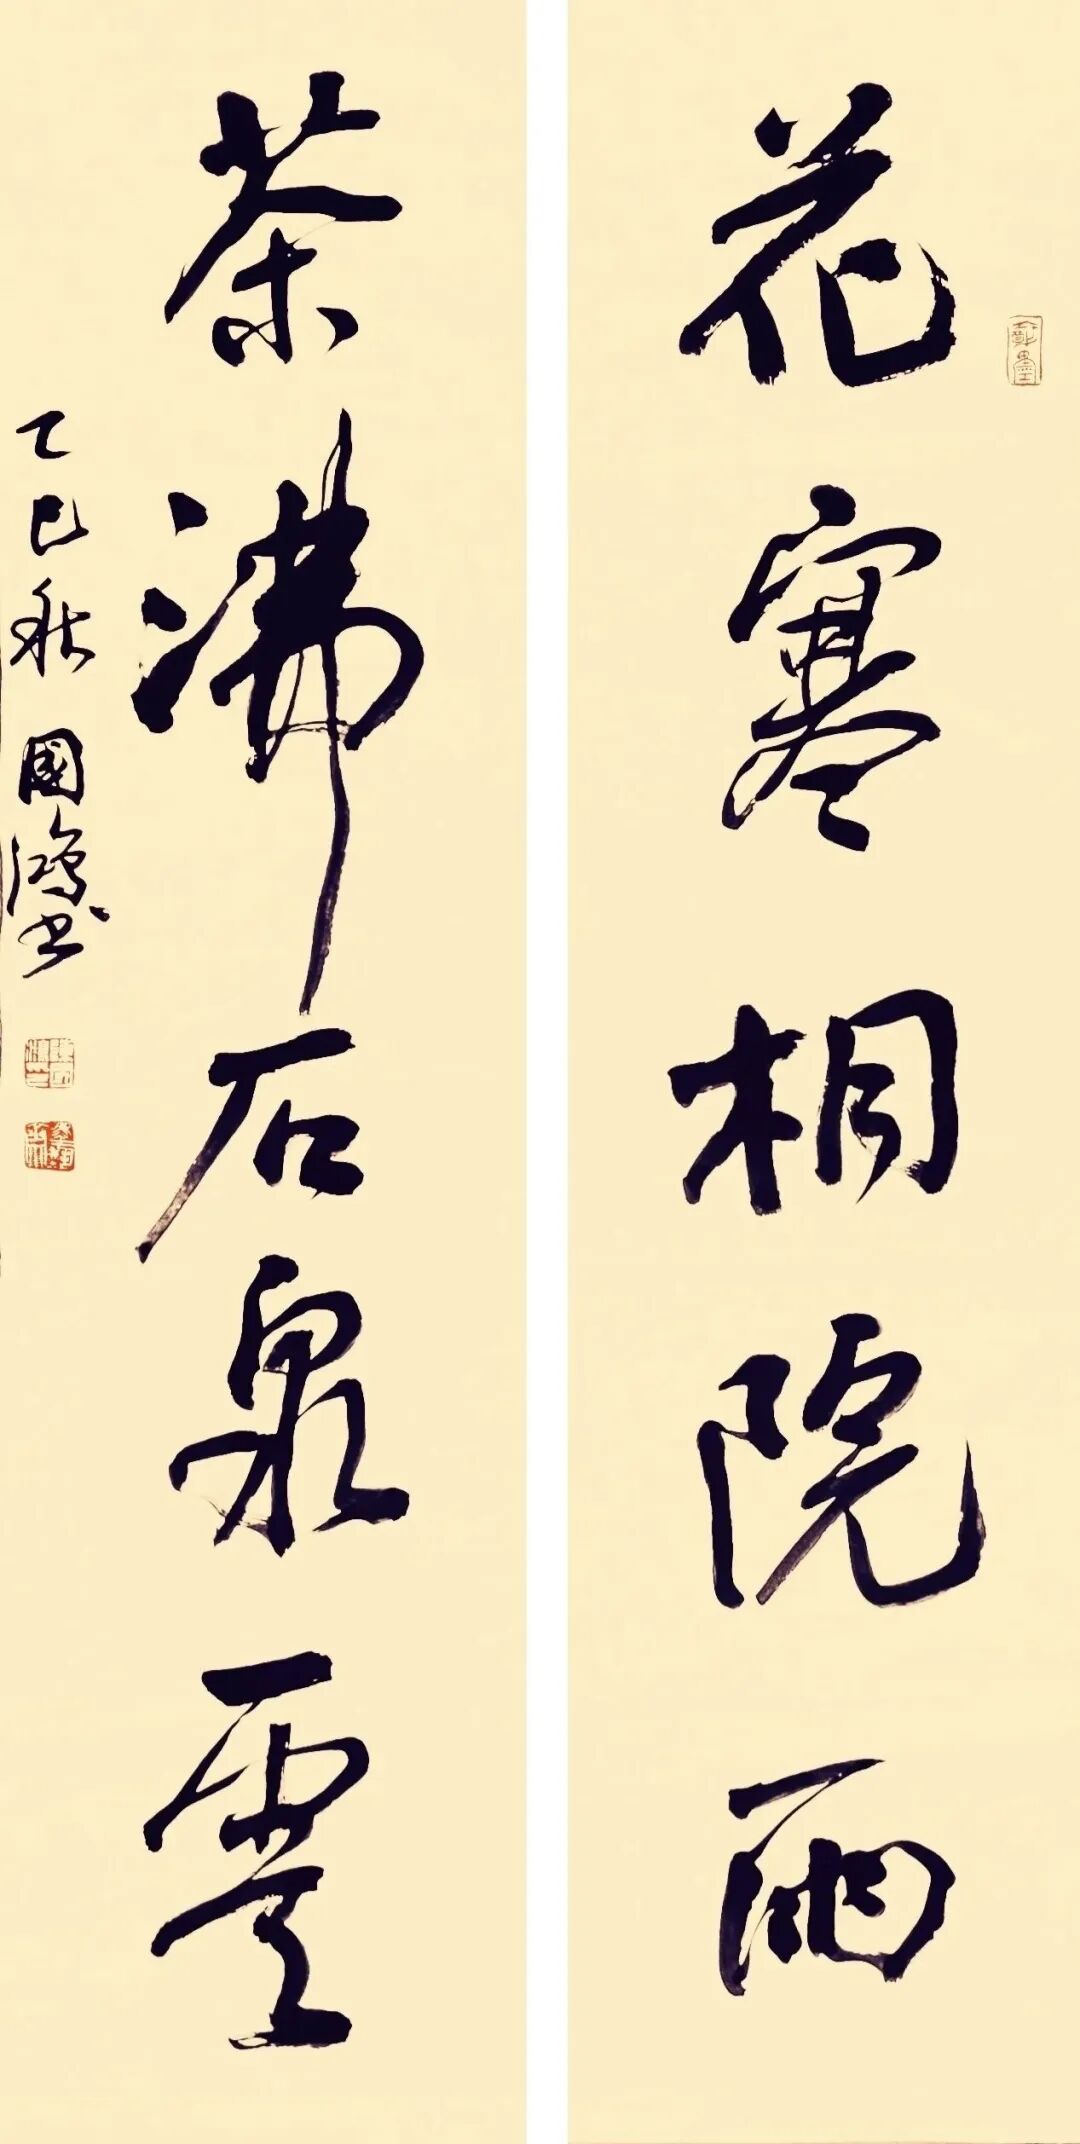 花寒桐院雨
茶沸石泉雲
乙巳秋國鴻書